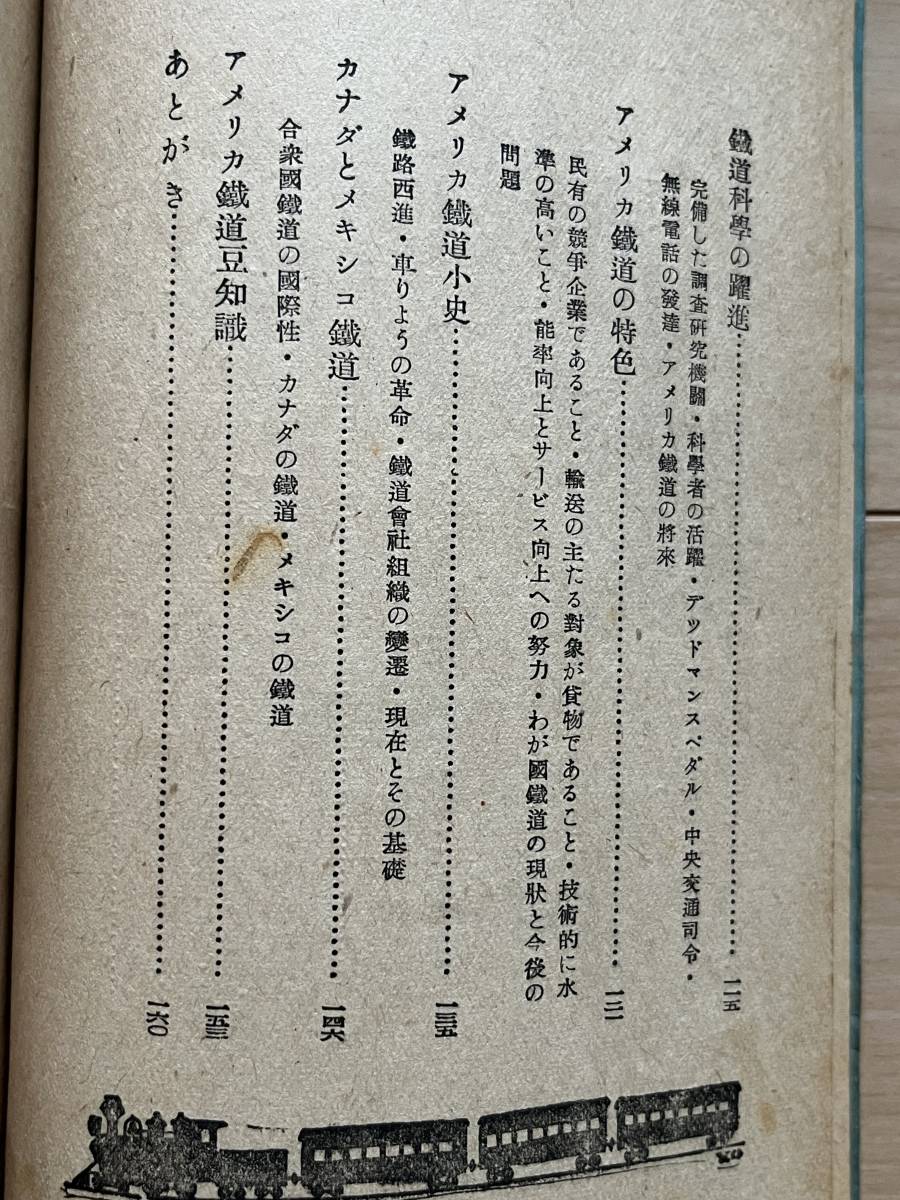 鐵道科學の躍進……………………………一一五
完備した調査研究機關・科學者の活躍・デツドマンスペダル・中央交通司令・
無線電話の發達・アメリカ鐵道の將來
アメリカ鐵道の特色……………………………一三一
民有の競爭企業であること・輸送の主たる對象が貨物であること・技術的に水
準の高いこと・能率向上とサービス向上への努力・わが國鐵道の現狀と今後の
問題
アメリカ鐵道小史……………………………一三五
鐵路西進・車りようの革命・鐵道會社組織の變遷・現在とその基礎
カナダとメキシコ鐵道……………………………一四六
合衆國鐵道の國際性・カナダの鐵道・メキシコの鐵道
アメリカ鐵道豆知識……………………………一五三
あとがき……………………………一六〇